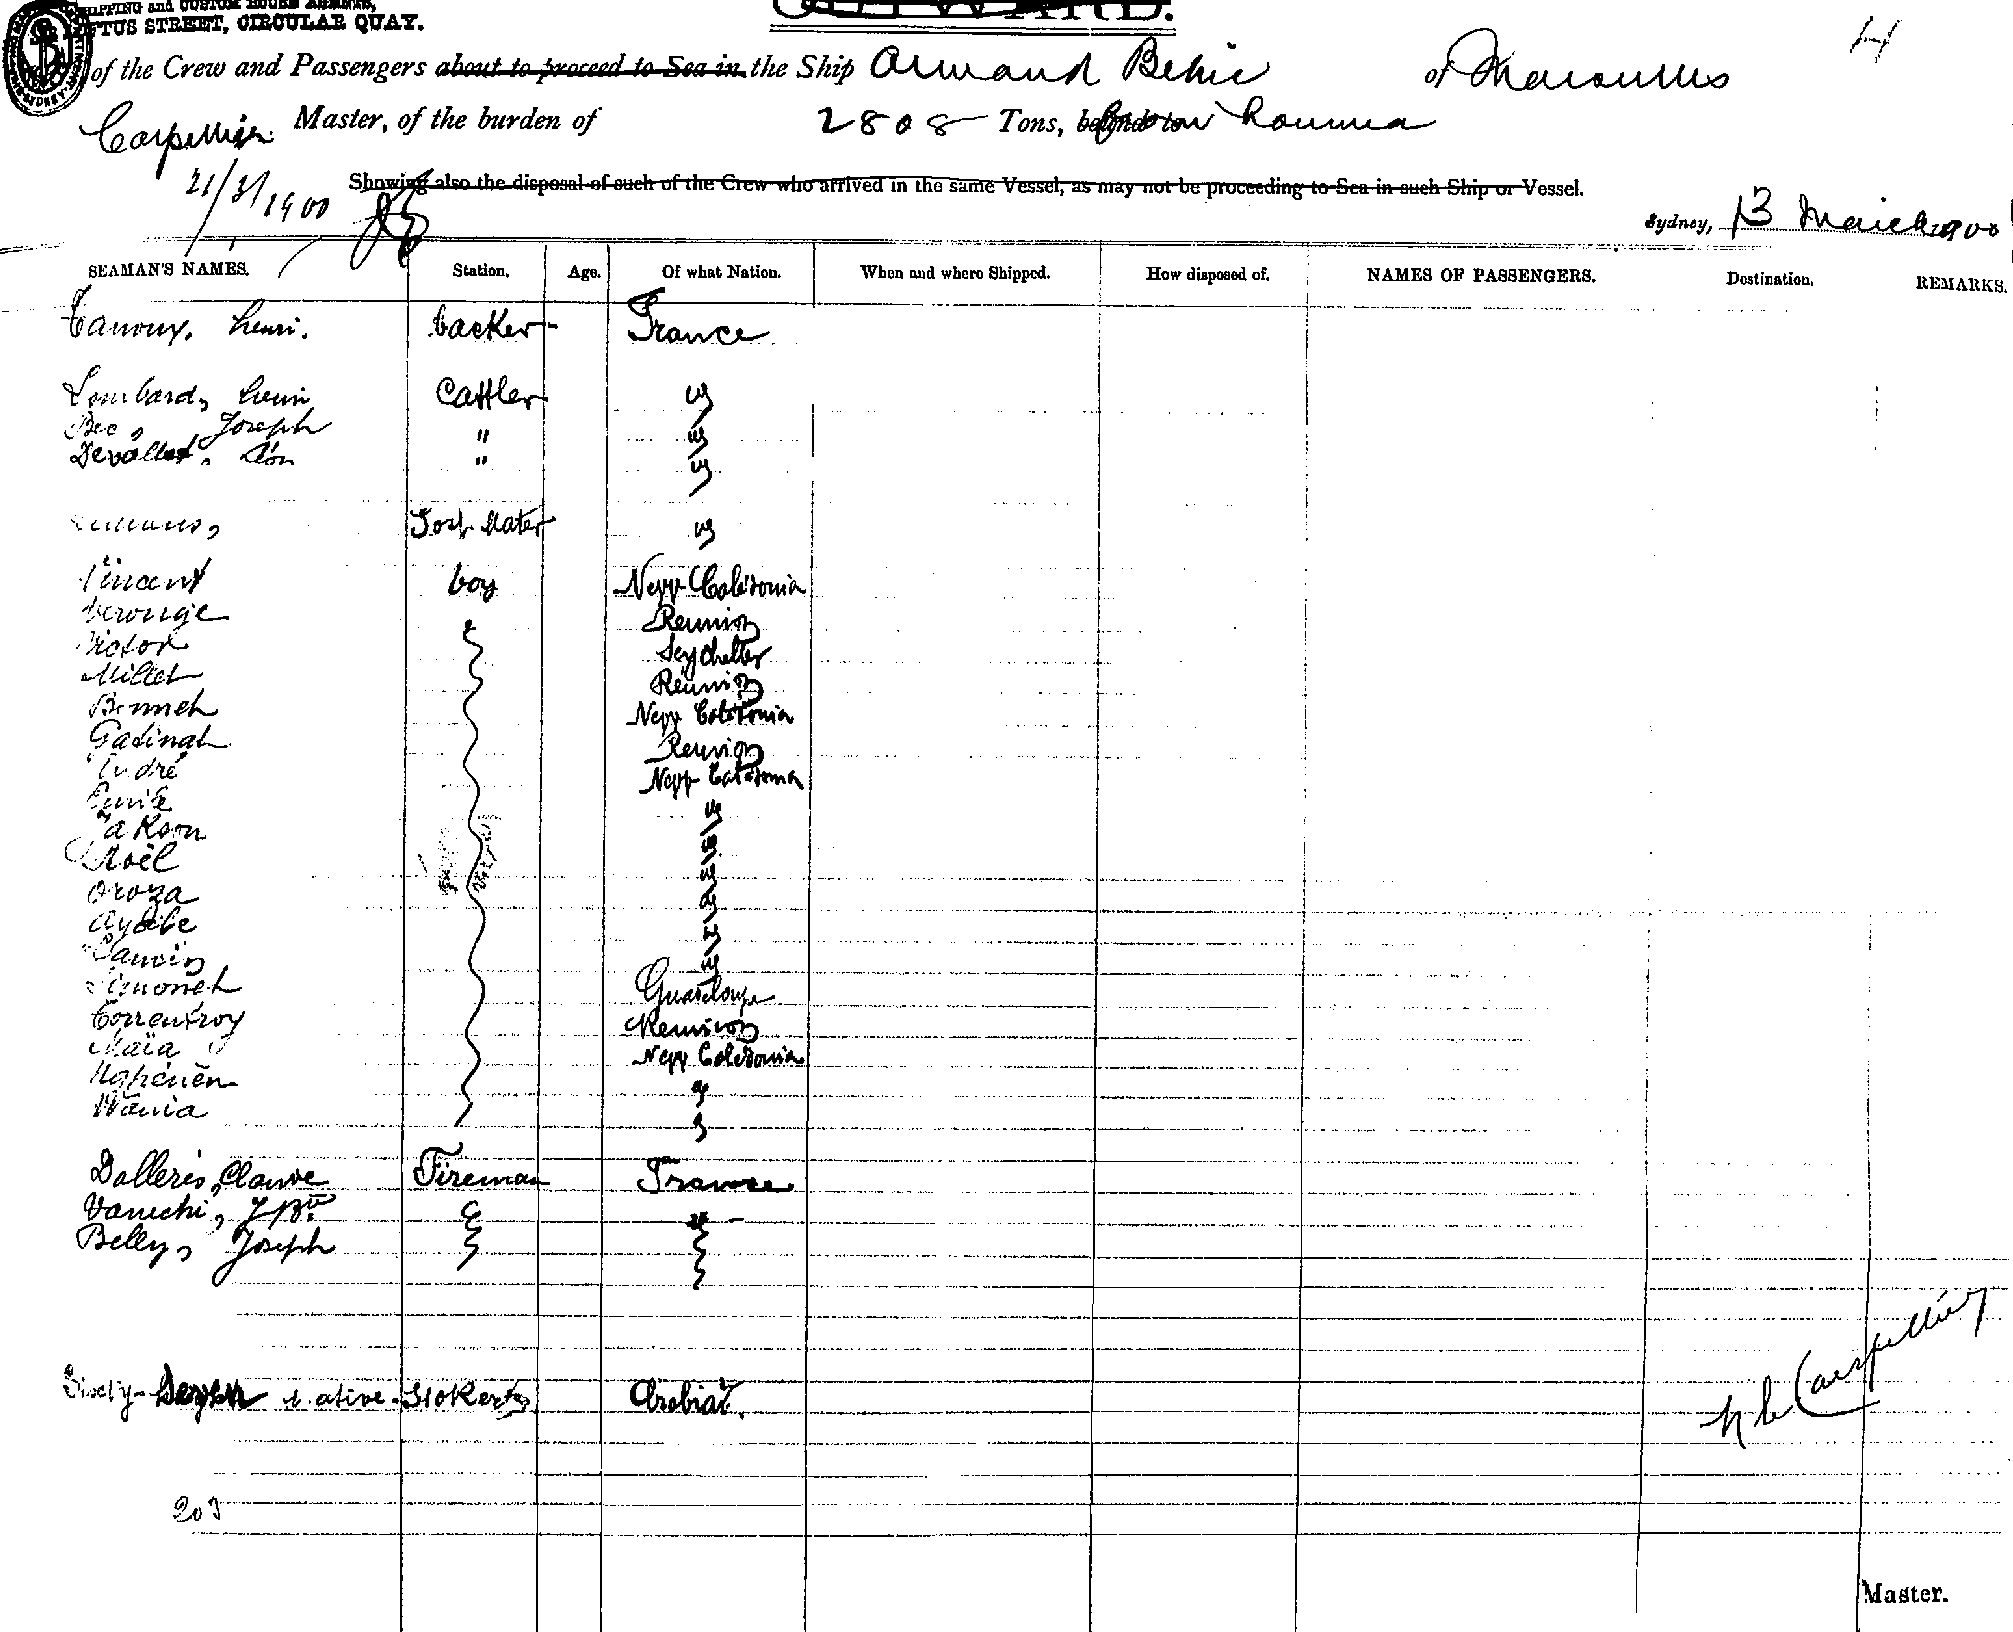 SHIPPING and CUSTOM HOUSE AGENTS,
LOFTUS STREET, CIRCULAR QUAY.
OUTWARD.
4
of the Crew and Passengers about to proceed to Sea in the Ship Armand Behic of Marseilles
Carpellier Master, of the burden of 2808 Tons, from Noumea
21/3/1900
Showing also the disposal of such of the Crew who arrived in the same Vessel, as may not be proceeding to Sea in such Ship or Vessel.
Sydney, 13 March 1900
SEAMAN'S NAMES. Station. Age. Of what Nation. When and where Shipped. How disposed of. NAMES OF PASSENGERS. Destination. REMARKS.
Henri. backer France
Lombard, Henri Cattler
Bec, Joseph "
Devallet, Léon "
Vincent boy New Caledonia
Reunion
Victor Seychelles
Millet Reunion
New Caledonia
Gadinah Reunion
André New Caledonia
Emile
Jakson
Noël
Oroza
Ayabe
Simoneh Guadeloupe
Torrentroy Reunion
Maïa New Caledonia
Wania
Dalleris, Claude Fireman France
Vanuchi, J Bte
Belly, Joseph
native Stokers Arabia
203
Carpellier
Master.